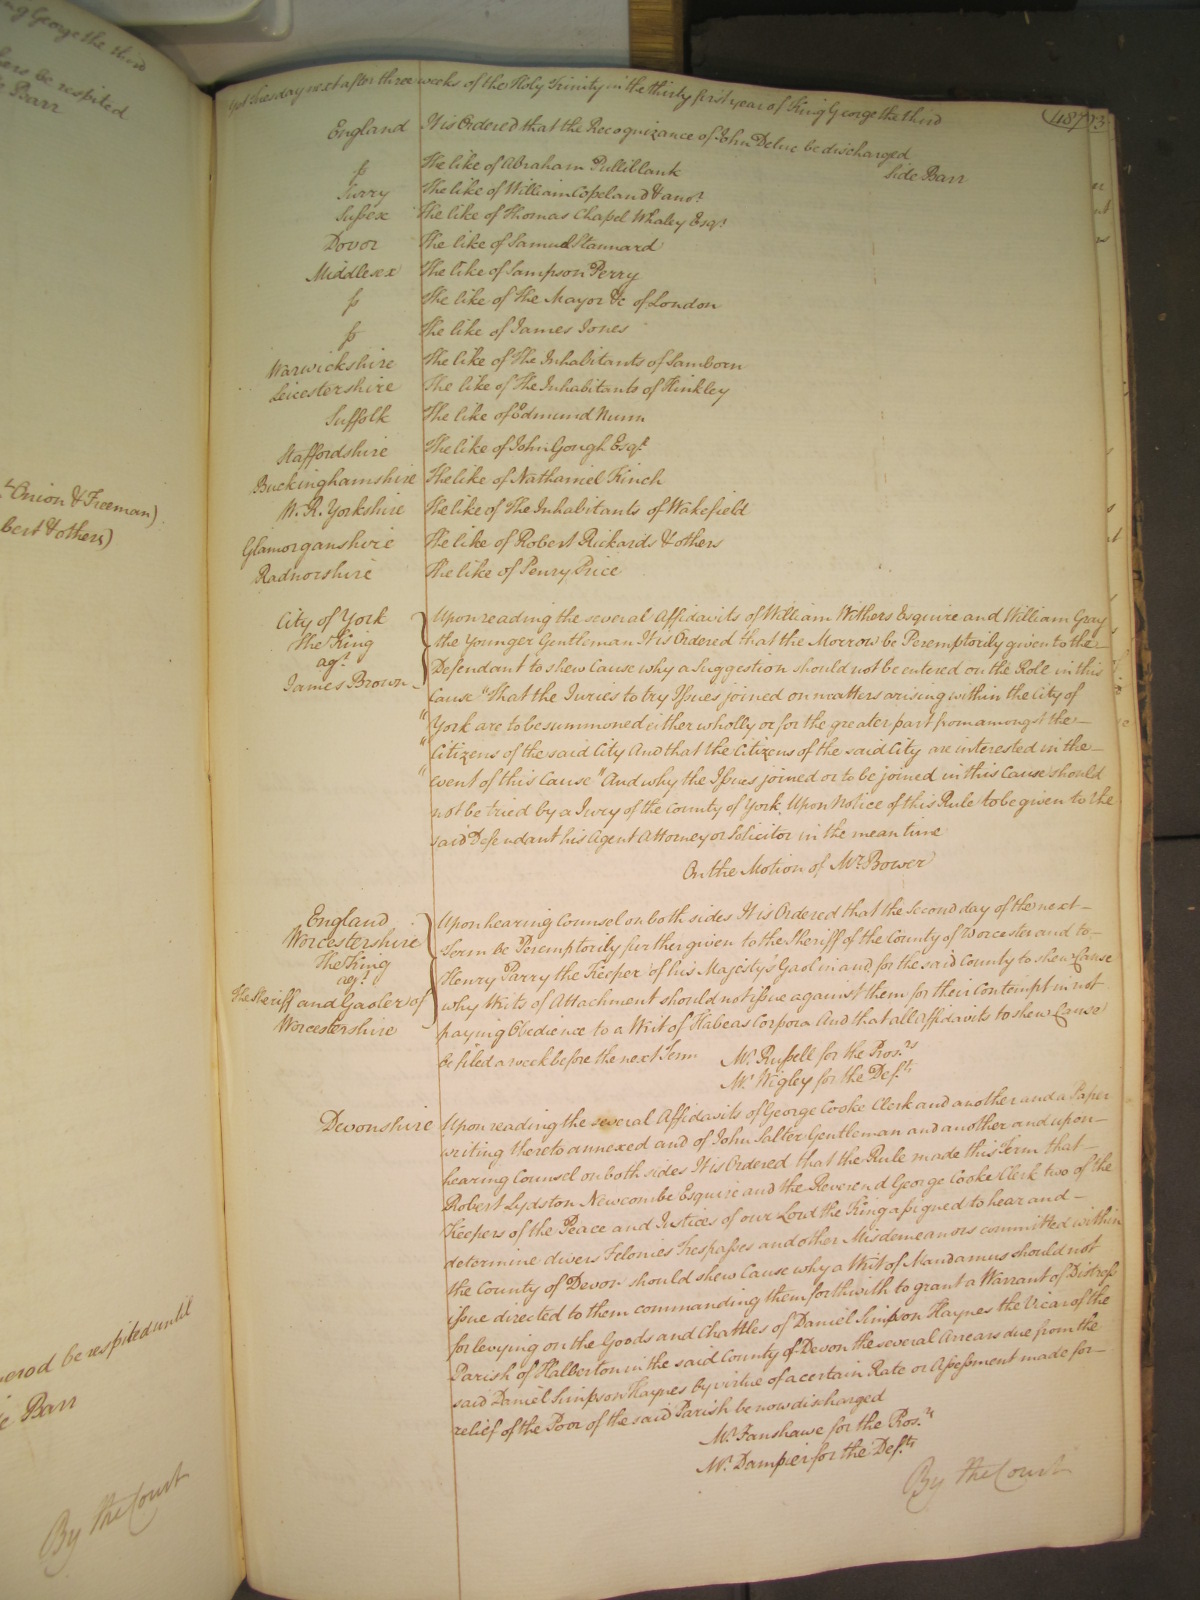 ng George the third
hers be respited
e Barr
t Onion & Freeman)
bert & others)
erod be respited until
e Barr
By the Court
yet Tuesday next after three weeks of the Holy Trinity in the thirty first year of King George the third
487
England It is Ordered that the Recognizance of John Delue be discharged
Side Barr
fs The like of Abraham Pulliblank
Surry The like of William Copeland & anor
Sussex The like of Thomas Chapel Whaley Esqr
Dovor The like of Samuel Stannard
Middlesex The like of Sampson Perry
fs The like of The Mayor &c of London
fs The like of James Jones
Warwickshire The like of The Inhabitants of Samborn
Leicestershire The like of The Inhabitants of Hinkley
Suffolk The like of Edmund Nunn
Staffordshire The like of John Gough Esqr
Buckinghamshire The like of Nathaniel Kinch
W. R. Yorkshire The like of The Inhabitants of Wakefield
Glamorganshire The like of Robert Rickards & others
Radnorshire The like of Penry Price
City of York
The King
agt
James Brown
Upon reading the several Affidavits of William Withers Esquire and William Gray
the Younger Gentleman It is Ordered that the Morrow be Peremptorily given to the
Defendant to shew Cause why a Suggestion should not be entered on the Role in this
Cause "That the Juries to try Issues joined on matters arising within the City of
" York are to be summoned either wholly or for the greater part from amongst the
" Citizens of the said City And that the Citizens of the said City are interested in the
" event of this Cause" And why the Issues joined or to be joined in this Cause should
not be tried by a Jury of the County of York Upon Notice of this Rule to be given to the
said Defendant his Agent Attorney or Solicitor in the mean time
On the Motion of Mr Bower
England
Worcestershire
The King
agt
The Sheriff and Gaoler of
Worcestershire
Upon hearing Counsel on both sides It is Ordered that the Second day of the next
Term be Peremptorily further given to the Sheriff of the County of Worcester and to
Henry Parry the Keeper of his Majesty's Gaol in and for the said County to shew Cause
why Writs of Attachment should not issue against them for their Contempt in not
paying Obedience to a Writ of Habeas Corpora And that all Affidavits to shew Cause
be filed a week before the next Term
Mr Russell for the Prosrs
Mr Wigley for the Defts
Devonshire Upon reading the several Affidavits of George Cooke Clerk and another and a Paper
writing thereto annexed and of John Salter Gentleman and another and upon
hearing Counsel on both sides It is Ordered that the Rule made this Term that
Robert Lydston Newcombe Esquire and the Reverend George Cooke Clerk two of the
Keepers of the Peace and Justices of our Lord the King assigned to hear and
determine divers Felonies Trespasses and other Misdemeanors committed within
the County of Devon should shew Cause why a Writ of Mandamus should not
issue directed to them commanding them forthwith to grant a Warrant of Distress
for levying on the Goods and Chattles of Daniel Simpson Haynes the Vicar of the
Parish of Halberton in the said County of Devon the several Arrears due from the
said Daniel Simpson Haynes by virtue of a certain Rate or Assessment made for
relief of the Poor of the said Parish be now discharged
Mr Fanshawe for the Prosr
Mr Dampier for the Defts
By the Court